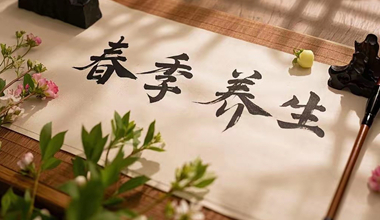 春季养生